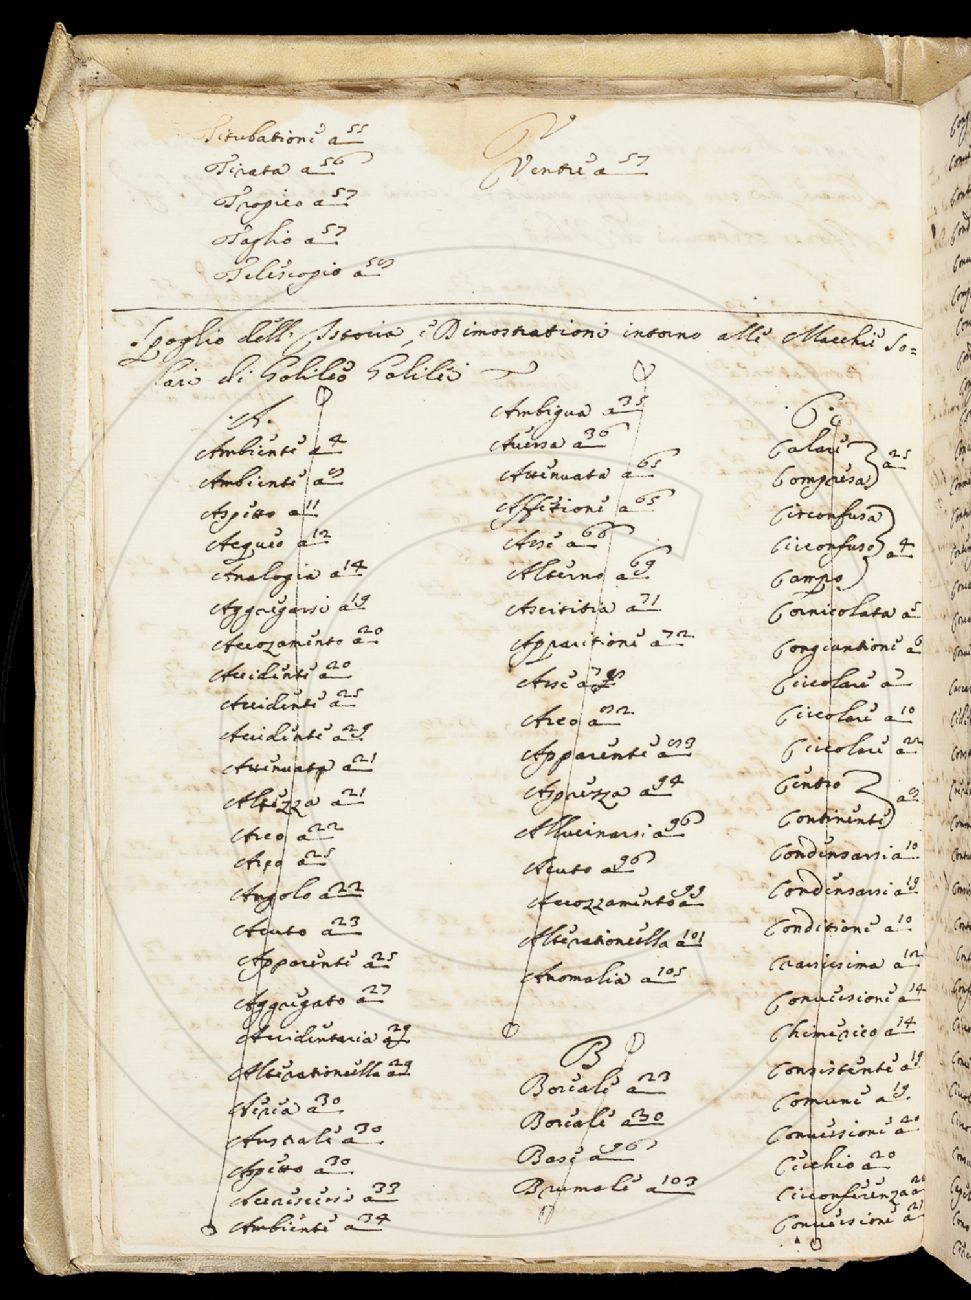 Titubatione a 55
Tirata a 56
Tropico a 57
Taglio a 57
Telescopio a 59
V
Ventre a 57
Spoglio dell' Istoria, e Dimostrationi intorno alle Macchie So=
lari di Galileo Galilei
.A.
Ambiente a 4
Ambiente a 9
Aspetto a 11
Aequeo a 12
Analogia a 14
Aggregarsi a 19
Accozamento a 20
Accidente a 20
Accidente a 25
Accidente a 29
Attenuata a 21
Altezza a 21
Arco a 22
Arco a 25
Angolo a 22
Acuto a 23
Apparente a 25
Aggregato a 27
Accidentaria a 29
Alterationcella a 29
Aerea a 30
Australe a 30
Aspetto a 30
Accrescersi a 33
Ambiente a 34
Ambigua a 35
Aversa a 36
Attenuata a 65
Affetioni a 65
Asse a 66
Alterno a 69
Ascititia a 71
Apparitione a 72
Asse a 78
Arco a 82
Apparente a 83
Aprezza a 94
Allucinarsi a 96
Acuto a 96
Accozzamento a 99
Alterationcella a 101
Anomalia a 105
B
Boreale a 23
Boreale a 30
Base a 96
Brumale a 103
.C.
Calare
Compresa a 25
Circonfusa
Circonfuso a 4
Campo
Cornicolata a 5
Congiuntione a 6
Circolare a 7
Circolare a 10
Circolare a 22
Centro
Continente a 9
Condensarsi a 10
Condensarsi a 19
Conditione a 10
Crassissima a 12
Conversione a 14
Chimerico a 14
Consistente a 19
Comune a 19
Conversione a 20
Cerchio a 20
Circonferenza a 21
Conversione a 21